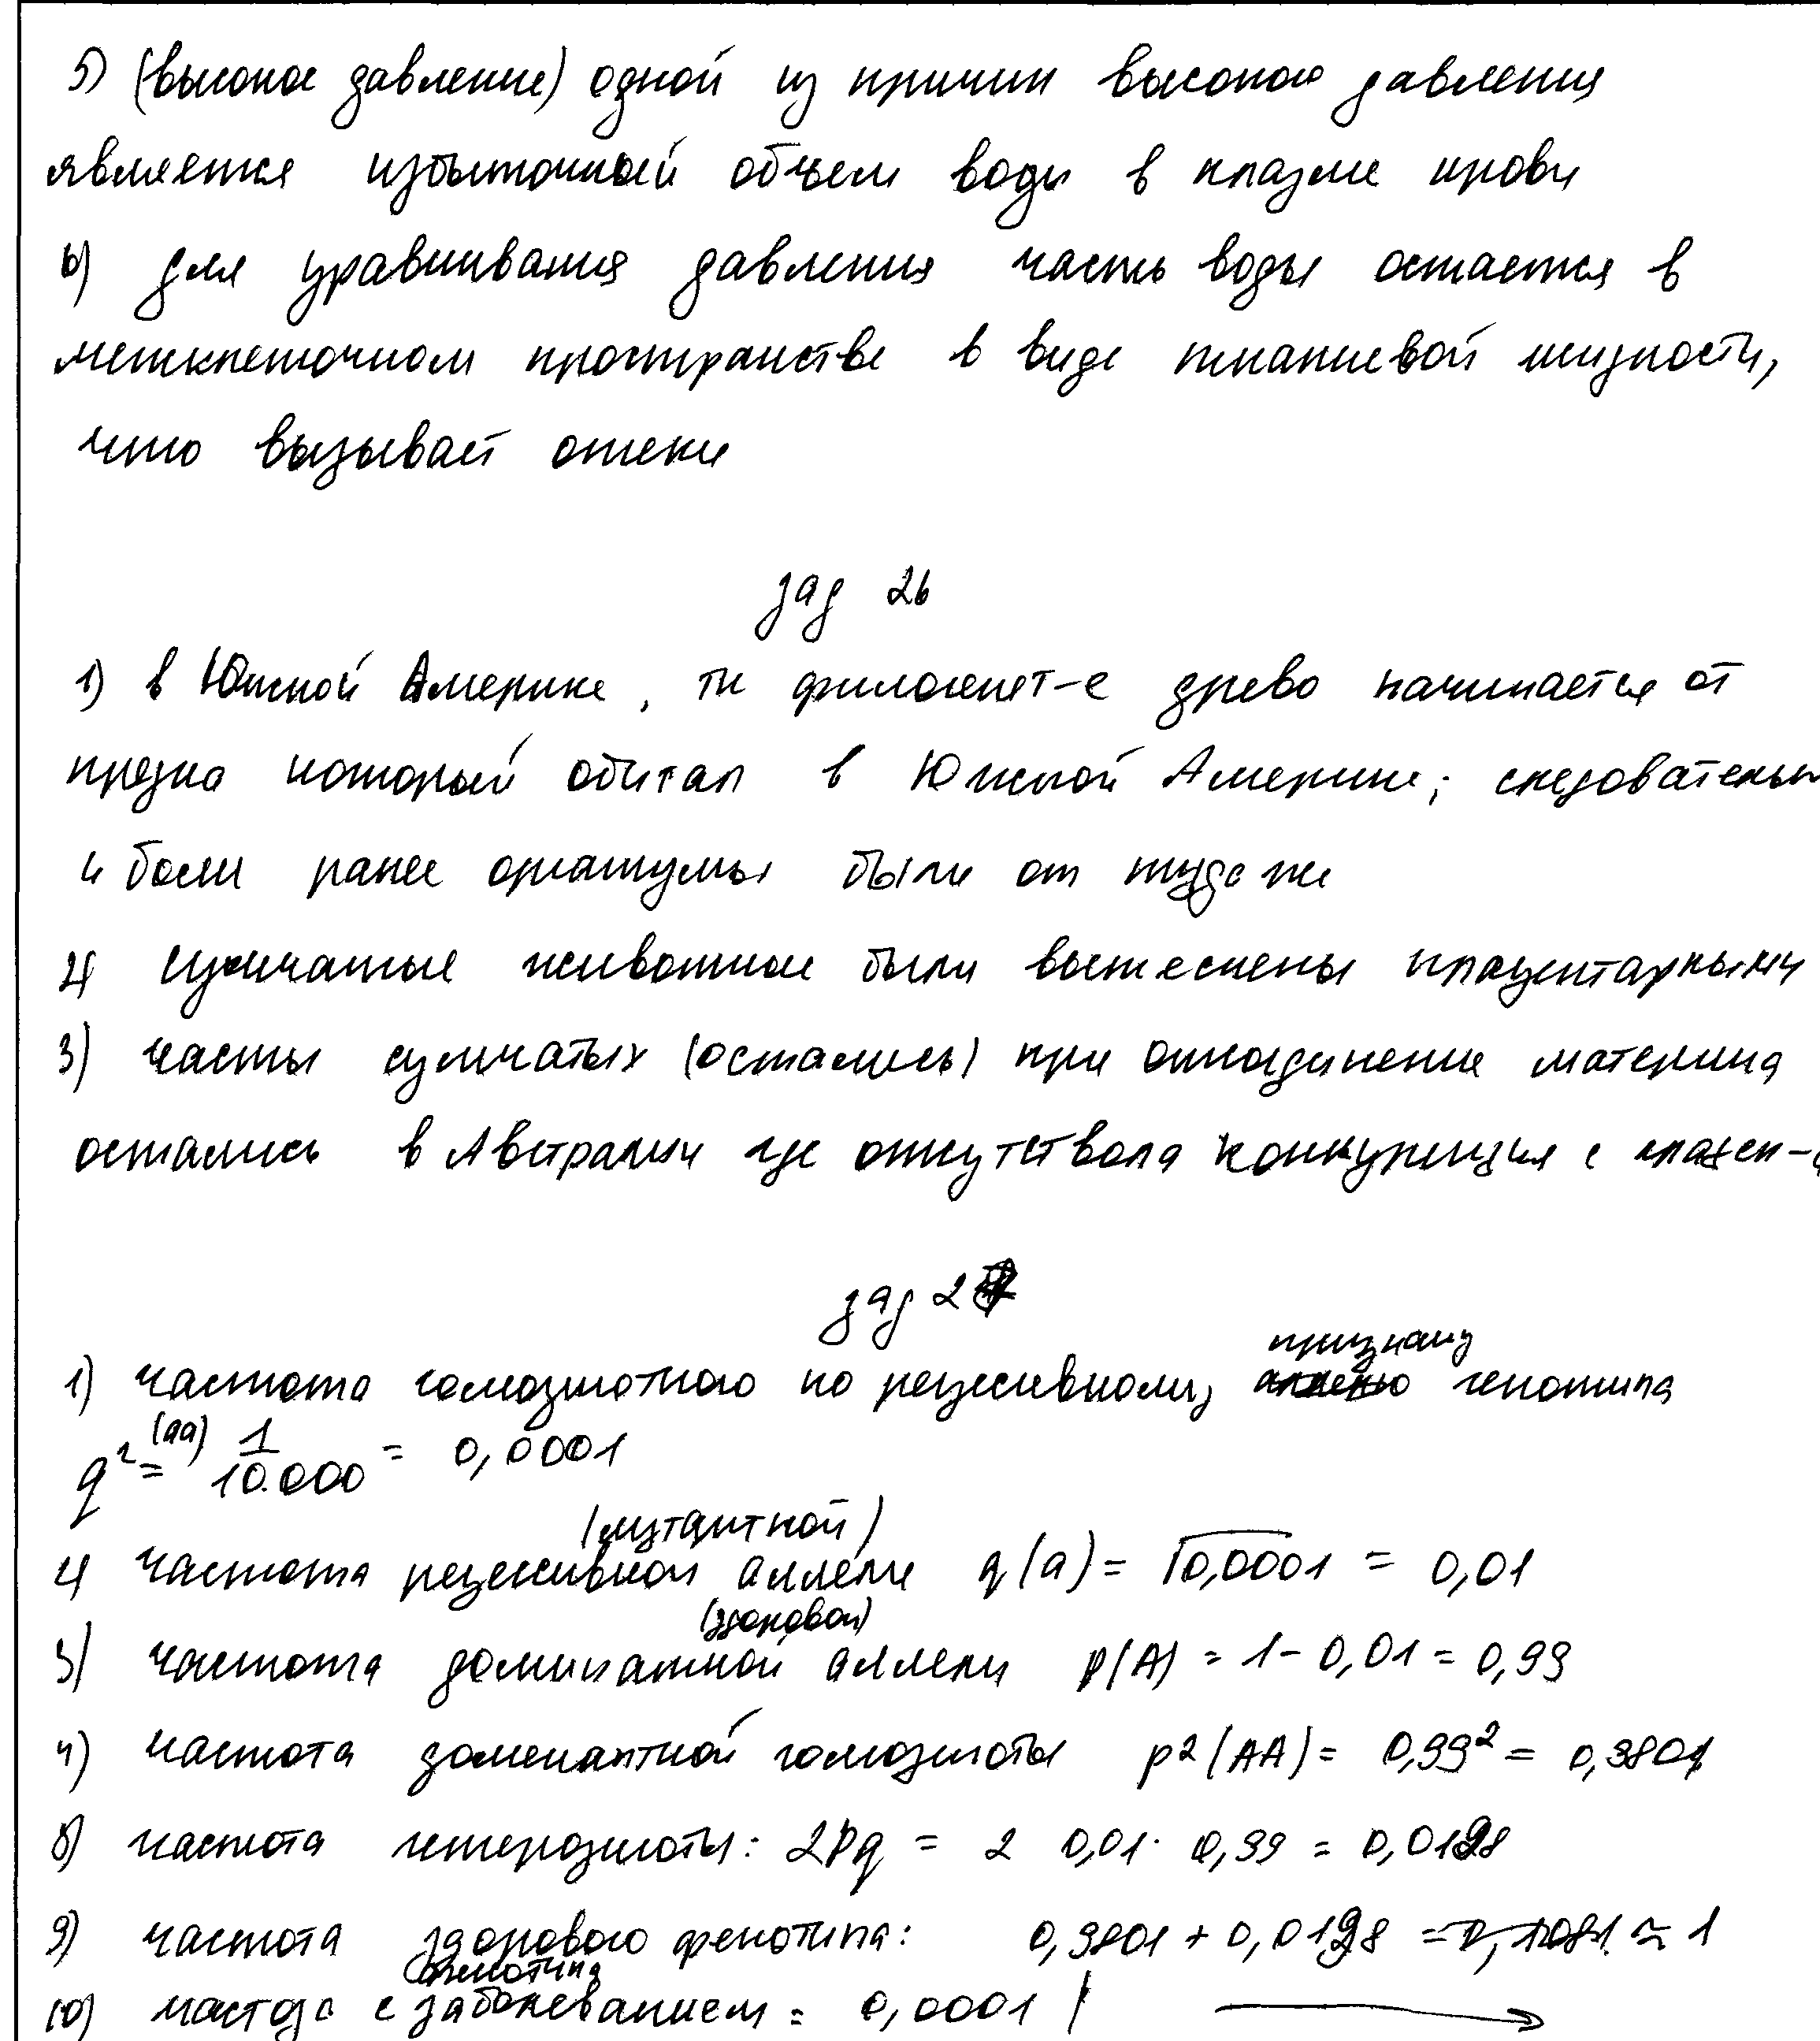 5) (высокое давление) одной из причин высокого давления
является избыточный объем воды в плазме крови
6) для уравнивания давления часть воды остается в
межклеточном пространстве в виде тканевой жидкости,
что вызывает отеки
зад 26
1) в Южной Америке, тк филогенет-е древо начинается от
предка который обитал в Южной Америке; следовательн
и более ранее организмы были от туда же
2) сумчатые животные были вытеснены плацентарными
3) часть сумчатых (остались) при отсоединение материка
остались в Австралии где отсутствовала конкуренция с плацен-
зад 27
признаку
1) частота гомозиготного по рецессивному генотипа
q² (аа) = 1/10.000 = 0,0001
(мутантной)
2) частота рецессивной аллели q(a) = √0,0001 = 0,01
(здоровой)
3) частота доминатной аллели p(A) = 1 - 0,01 = 0,99
4) частота доменантной гомозиготы p2(AA) = 0,99² = 0,9801
8) частота гетерозиготы: 2pq = 2 0,01 · 0,99 = 0,0198
9) частота здорового фенотипа: 0,9801 + 0,0198 = ≈ 1
фенотипа
10) с заболеванием = 0,0001